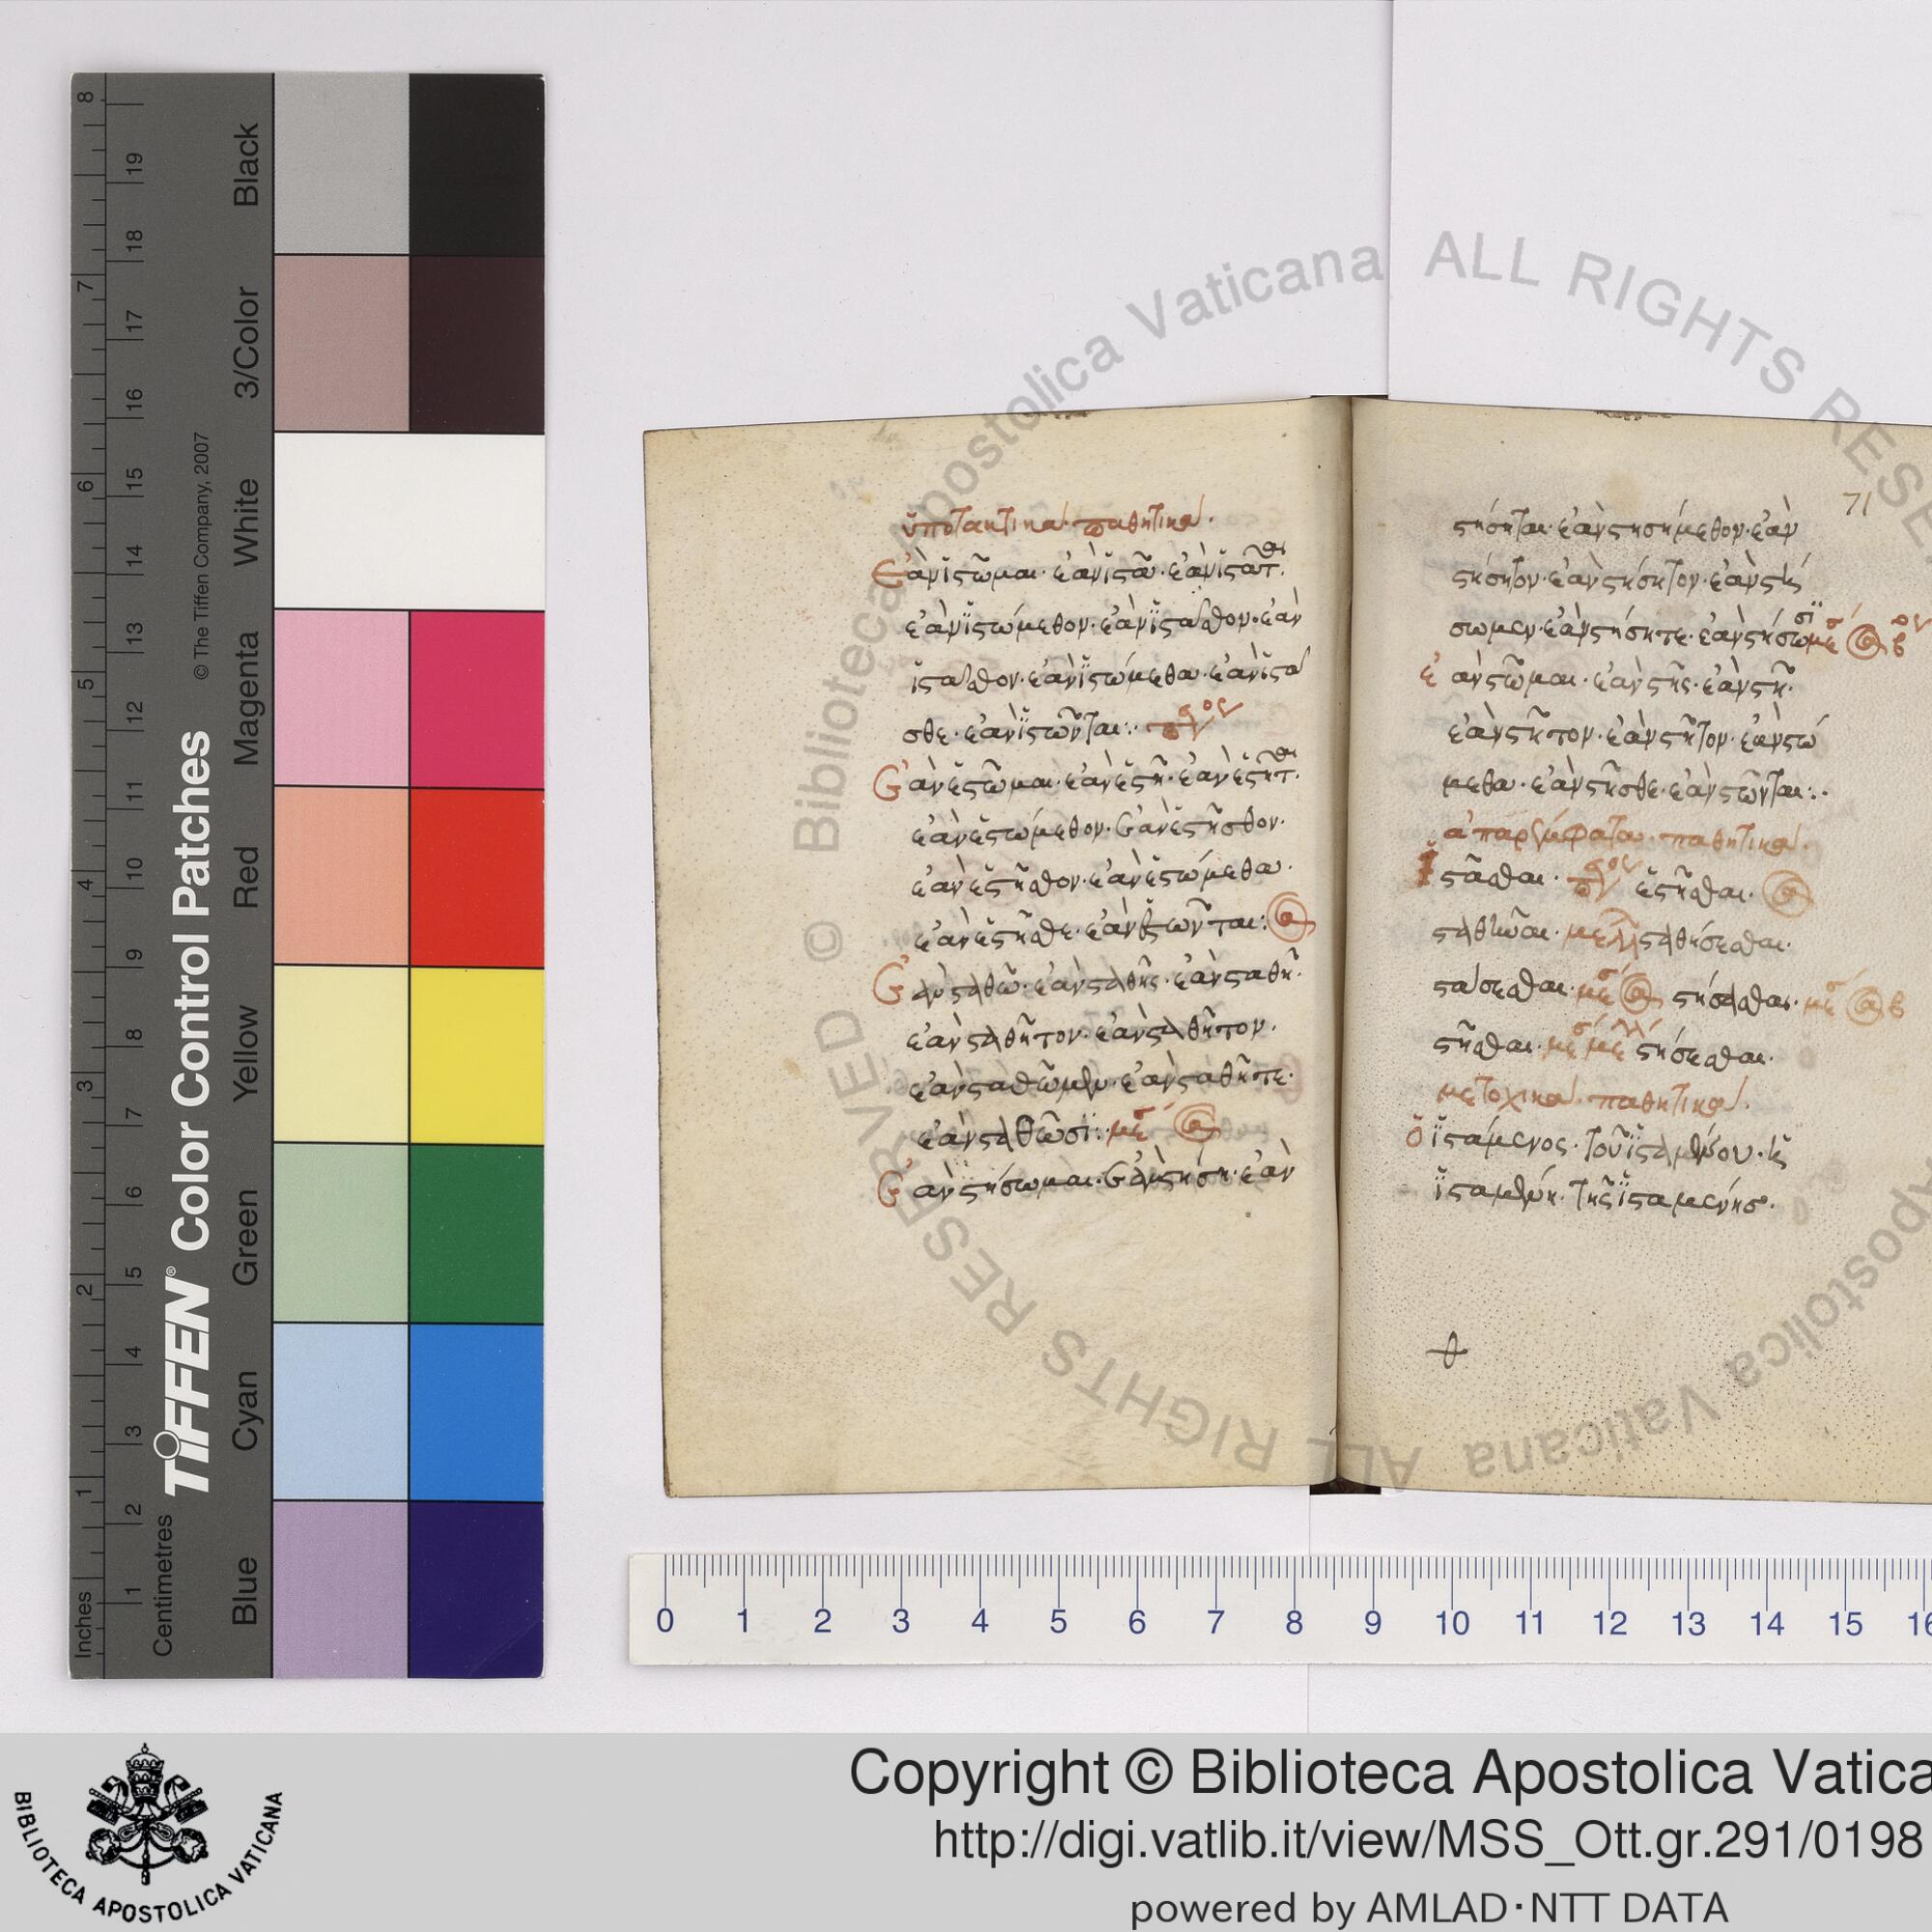 ὑποτακτικὰ παθητικά.
Ἐὰν ἱστῶμαι· ἐὰν ἱστᾶ· ἐὰν ἱστᾶται.
ἐὰν ἱστώμεθον· ἐὰν ἱστάσθον· ἐὰν
ἱστάσθον· ἐὰν ἱστώμεθα· ἐὰν ἱστά
σθε· ἐὰν ἱστῶνται:·
Ἐὰν ἑστῶμαι· ἐὰν ἑστῆ· ἐὰν ἑστῆται.
ἐὰν ἑστώμεθον· ἐὰν ἑστῆσθον·
ἐὰν ἑστῆσθον· ἐὰν ἑστώμεθα·
ἐὰν ἑστῆσθε· ἐὰν ἑστῶνται:
Ἐὰν σταθῶ· ἐὰν σταθῆς· ἐὰν σταθῆ·
ἐὰν σταθῆτον· ἐὰν σταθῆτον.
ἐὰν σταθῶμεν· ἐὰν σταθῆτε·
ἐὰν σταθῶσι:· μέσ
Ἐὰν στήσωμαι· ἐὰν στήση· ἐὰν
71
στήσηται· ἐὰν στησήμεθον· ἐὰν
στήσητον· ἐὰν στήσητον· ἐὰν στή
σωμεν· ἐὰν στήσητε· ἐὰν στήσωσι μέσ β
ἐὰν στῶμαι· ἐὰν στῆς· ἐὰν στῆ·
ἐὰν στῆτον· ἐὰν στῆτον· ἐὰν στώ
μεθα· ἐὰν στῆσθε· ἐὰν στῶνται:·
ἀπαρέμφατα παθητικά.
ἱστᾶσθαι· ἑστῆσθαι·
σταθῆναι· μέλλ σταθήσεσθαι·
στάσεσθαι· μέσ στήσασθαι· μέσ β
στῆσθαι· μέσ μέλλ στήσεσθαι·
μετοχικὰ παθητικά.
ὁ ἱστάμενος· τοῦ ἱσταμένου· κ
ἱσταμένη· τῆς ἱσταμένης.
Inches
Centimetres
TIFFEN® Color Control Patches
© The Tiffen Company, 2007
Blue Cyan Green Yellow Red Magenta White 3/Color Black
1 2 3 4 5 6 7 8
1 2 3 4 5 6 7 8 9 10 11 12 13 14 15 16 17 18 19
0 1 2 3 4 5 6 7 8 9 10 11 12 13 14 15 16
© Biblioteca Apostolica Vaticana ALL RIGHTS RESERVED
BIBLIOTECA APOSTOLICA VATICANA
Copyright © Biblioteca Apostolica Vatica
http://digi.vatlib.it/view/MSS_Ott.gr.291/0198
powered by AMLAD·NTT DATA